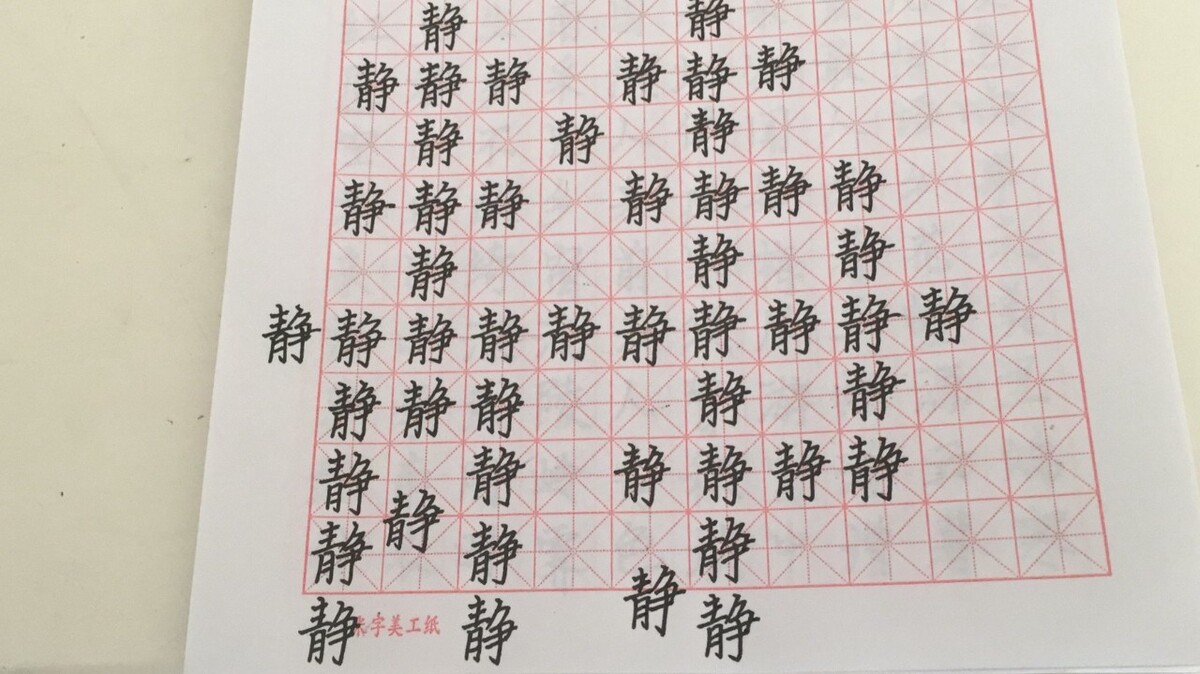 静 静
静 静 静 静 静 静
静 静 静
静 静 静 静 静 静 静
静 静 静
静 静 静 静 静 静 静 静 静 静
静 静 静 静 静
静 静 静 静 静 静
静 静 静 静
静 静 静 静
字美工纸